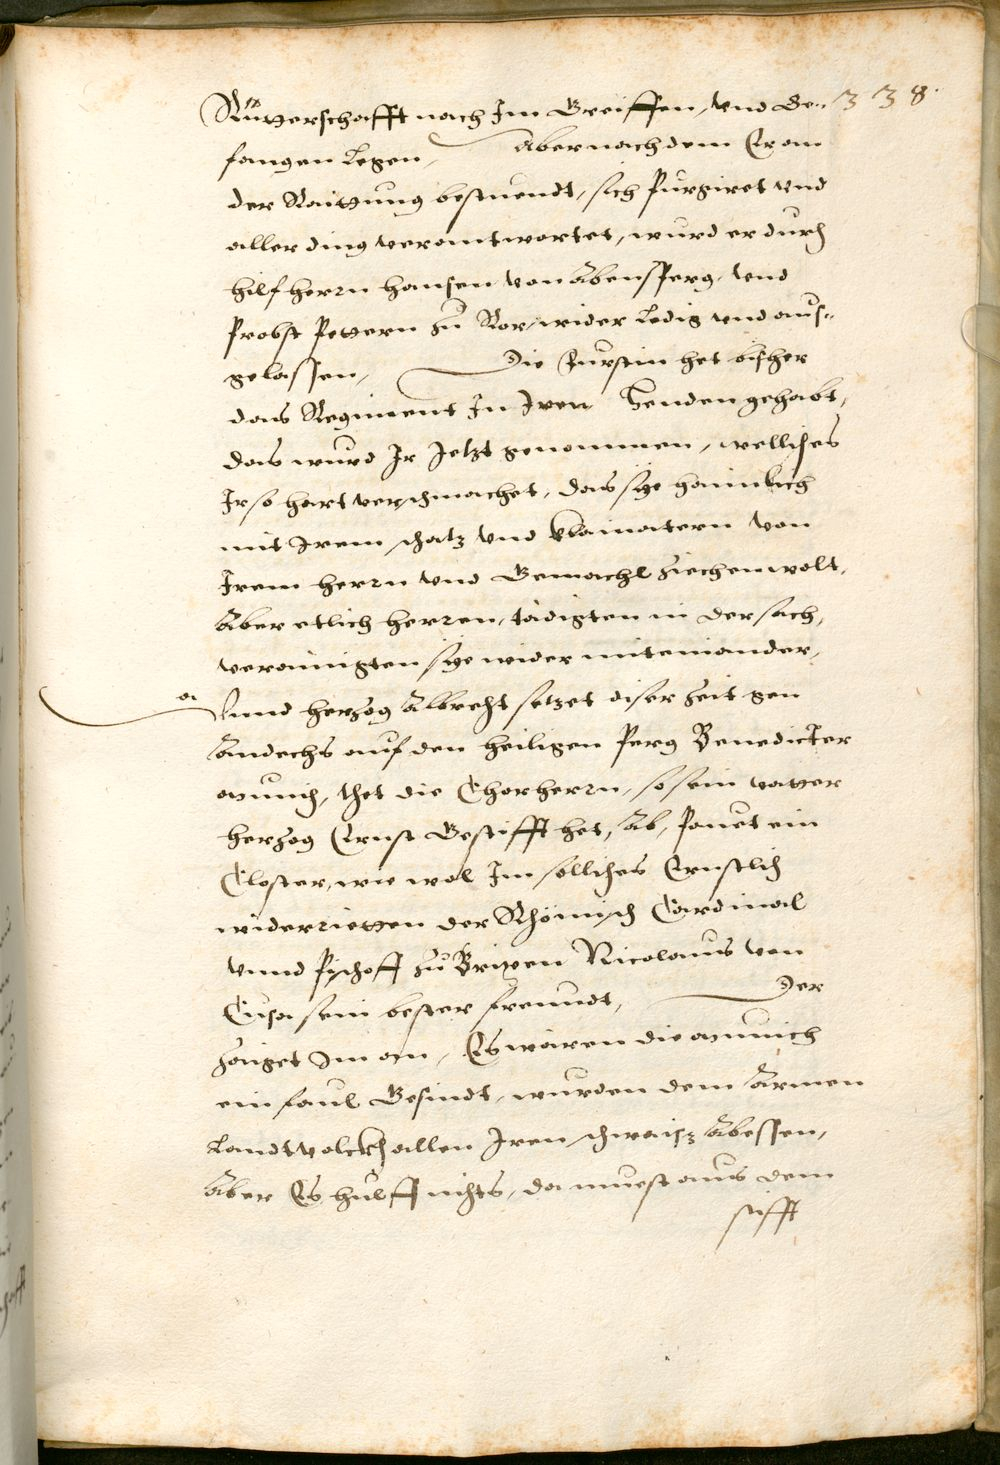 338.
Rütterschafft nach Im Greiffen, vnd Ge-
fangen Legen, Aber nachdem Er am
der Raittung bestuendt, sich Purgiret vnd
aller ding verantwortet, wurd er durch
hilf herrn Hansen von Abensperg, vnd
Probst Pettern zu Ror, wider Ledig vnd aus-
gelassen, Die Fürstin het bißher
das Regiment In Iren Henden gehabt,
das wurd Ir Jetzt genommen, wellches
Ir so hart verschmachet, das sye haimlich
mit Irem schatz vnd Klainatern von
Irem herrn vnd Gemachl Ziechen wolt,
Aber etlich herren, tädigten in der sach,
verainigten sye wider miteinander,
Vnnd herzog Albrecht setzet diser Zeit gen
Andechs auf den heiligen Perg Benedicter
Münich, thet die Chorherrn, so sein vatter
herzog Ernst Gestifft het, Ab, Pauet ein
Closter, wie wol Im sollches Ernstlich
widerrietten der Rhömisch Cardinal
vnnd Pischoff zu Brixen Nicolaus von
Cusa sein bester freundt, Der
Zaiget Im an, Es wären die Münnich
ein faul Gesindt, wurden dem Armen
Landtvolckh allen Iren schwaisz Abessen,
Aber Es hulff nichts, da muest aus dem
stifft